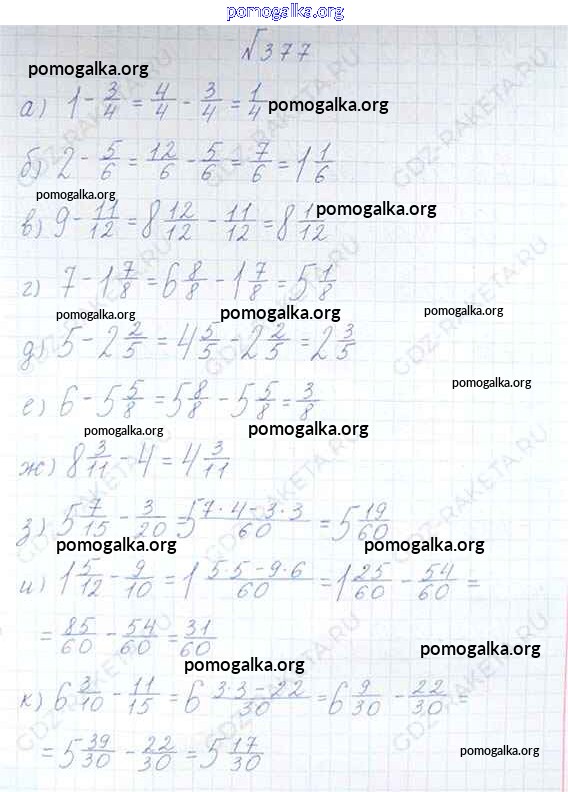 pomogalka.org
№377
pomogalka.org
а) 1 - 3/4 = 4/4 - 3/4 = 1/4 pomogalka.org
б) 2 - 5/6 = 12/6 - 5/6 = 7/6 = 1 1/6
pomogalka.org pomogalka.org
в) 9 - 11/12 = 8 12/12 - 11/12 = 8 1/12
г) 7 - 1 7/8 = 6 8/8 - 1 7/8 = 5 1/8
pomogalka.org pomogalka.org pomogalka.org
д) 5 - 2 2/5 = 4 5/5 - 2 2/5 = 2 3/5
pomogalka.org
е) 6 - 5 5/8 = 5 8/8 - 5 5/8 = 3/8
pomogalka.org pomogalka.org
ж) 8 3/11 - 4 = 4 3/11
з) 5 7/15 - 3/20 = 5 7·4-3·3/60 = 5 19/60
pomogalka.org pomogalka.org
и) 1 5/12 - 9/10 = 1 5·5-9·6/60 = 1 25/60 - 54/60 =
= 85/60 - 54/60 = 31/60
pomogalka.org
к) 6 3/10 - 11/15 = 6 3·3-22/30 = 6 9/30 - 22/30 =
= 5 39/30 - 22/30 = 5 17/30
pomogalka.org
GDZ-RAKETA.RU